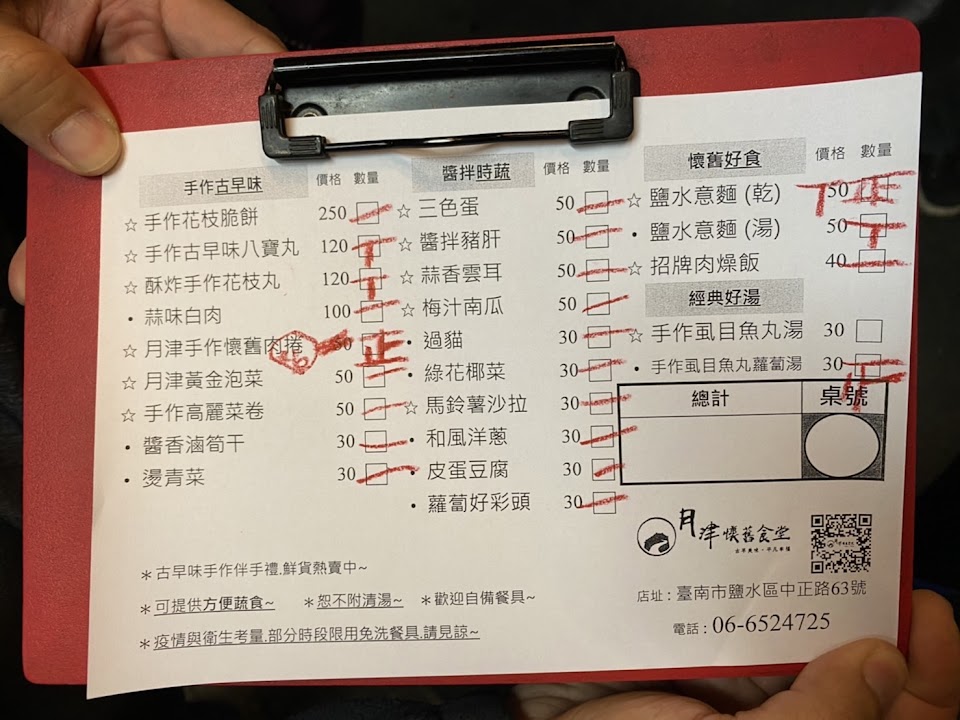 手作古早味 價格 數量
☆ 手作花枝脆餅 250 一
☆ 手作古早味八寶丸 120 丅
☆ 酥炸手作花枝丸 120 丅
• 蒜味白肉 100 一
☆ 月津手作懷舊肉捲 50 正
☆ 月津黃金泡菜 50 一
☆ 手作高麗菜卷 50 一
• 醬香滷筍干 30 一
• 燙青菜 30 一
醬拌時蔬 價格 數量
☆ 三色蛋 50 一
☆ 醬拌豬肝 50 一
☆ 蒜香雲耳 50 一
☆ 梅汁南瓜 50 一
• 過貓 30 一
• 綠花椰菜 30 一
☆ 馬鈴薯沙拉 30 一
• 和風洋蔥 30 一
• 皮蛋豆腐 30 一
• 蘿蔔好彩頭 30 一
懷舊好食 價格 數量
☆ 鹽水意麵 (乾) 50 正丅
• 鹽水意麵 (湯) 50 丅
☆ 招牌肉燥飯 40 一
經典好湯
☆ 手作虱目魚丸湯 30
• 手作虱目魚丸蘿蔔湯 30
總計 桌號
月津懷舊食堂
古早美味・平凡幸福
店址 : 臺南市鹽水區中正路63號
電話 : 06-6524725
＊古早味手作伴手禮.鮮貨熱賣中~
＊可提供方便蔬食~ ＊恕不附清湯~ ＊歡迎自備餐具~
＊疫情與衛生考量.部分時段限用免洗餐具.請見諒~